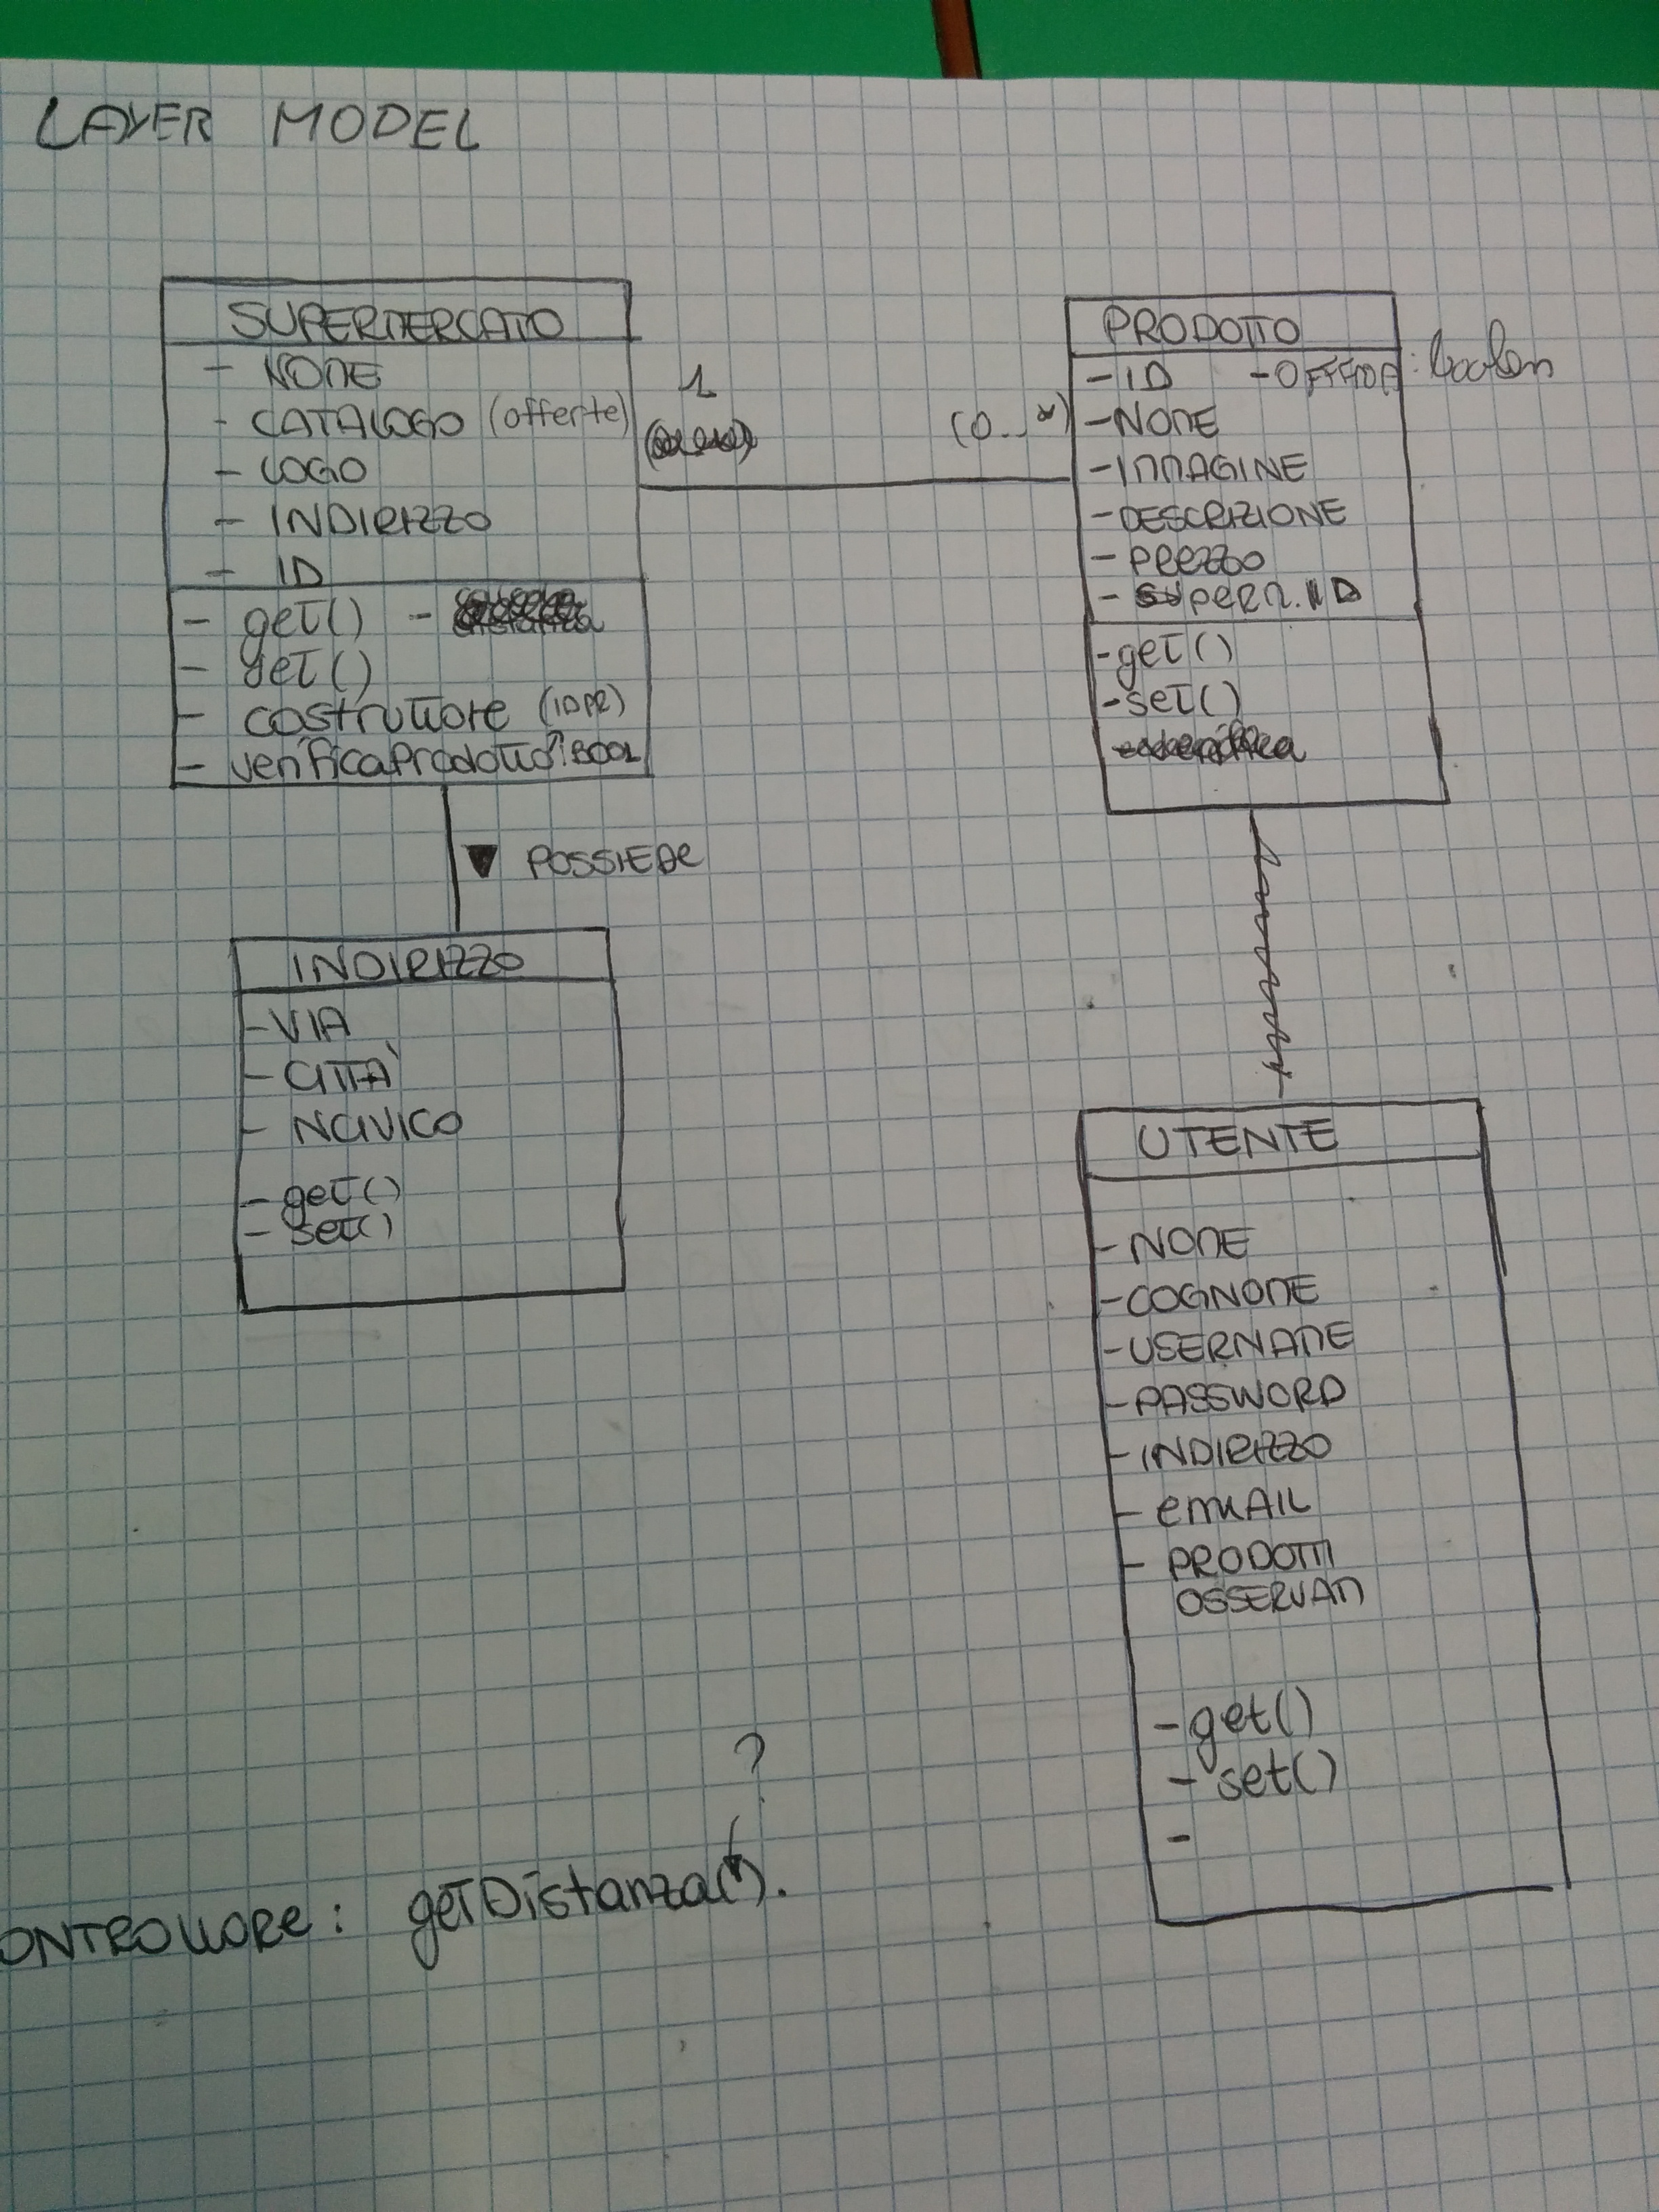 LAYER MODEL
SUPERMERCATO
- NOME
- CATALOGO (offerte)
- LOGO
- INDIRIZZO
- ID
- get() -
- set()
- costruttore (IDPR)
- verificaProdotto: BOOL
1
(0..*)
PRODOTTO
- ID - OFFERTA: boolean
- NOME
- IMMAGINE
- DESCRIZIONE
- PREZZO
- SUPERM.ID
- get()
- set()
▼ POSSIEDE
INDIRIZZO
- VIA
- CITTÀ
- NCIVICO
- get()
- set()
UTENTE
- NOME
- COGNOME
- USERNAME
- PASSWORD
- INDIRIZZO
- EMAIL
- PRODOTTI
OSSERVATI
- get()
- set()
-
?
ONTROLLORE: getDistanza().